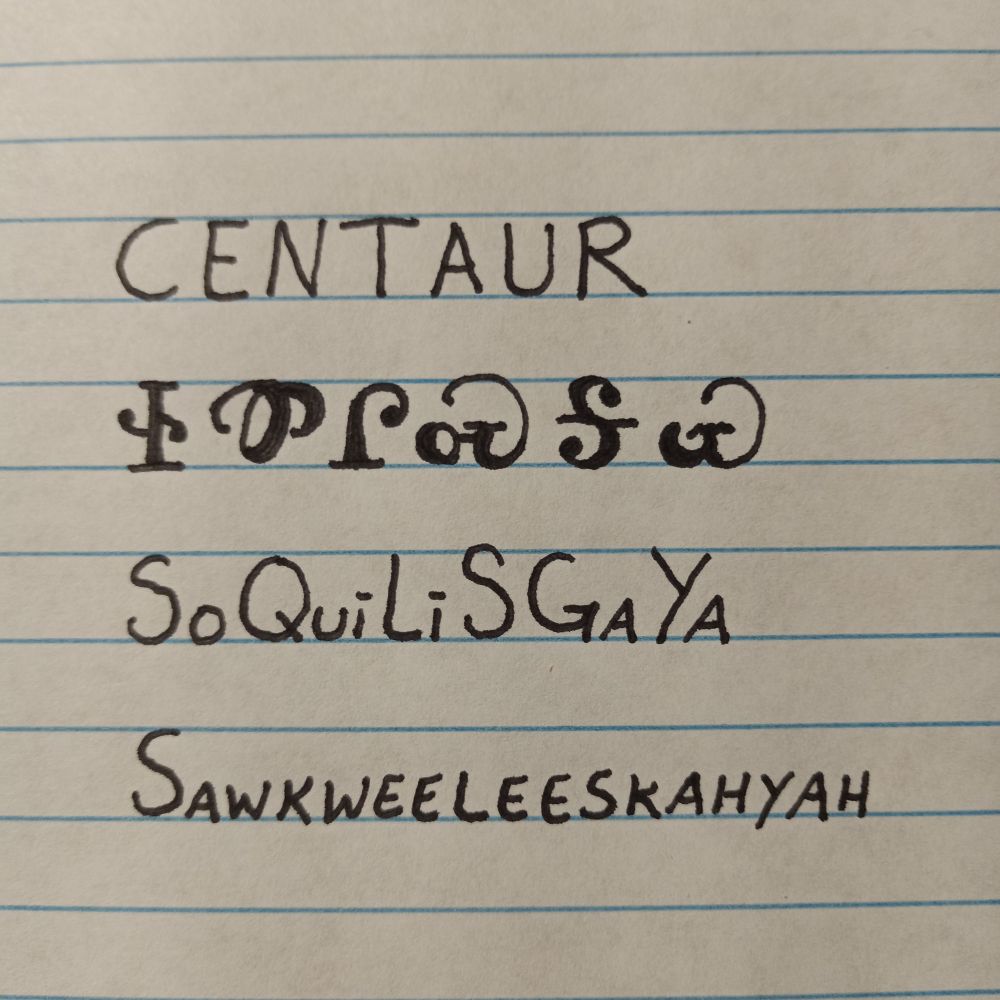 CENTAUR
ᏐᏈᎵᏍᎦᏯ
SoQuiLiSGaYa
SAWKWEELEESKAHYAH